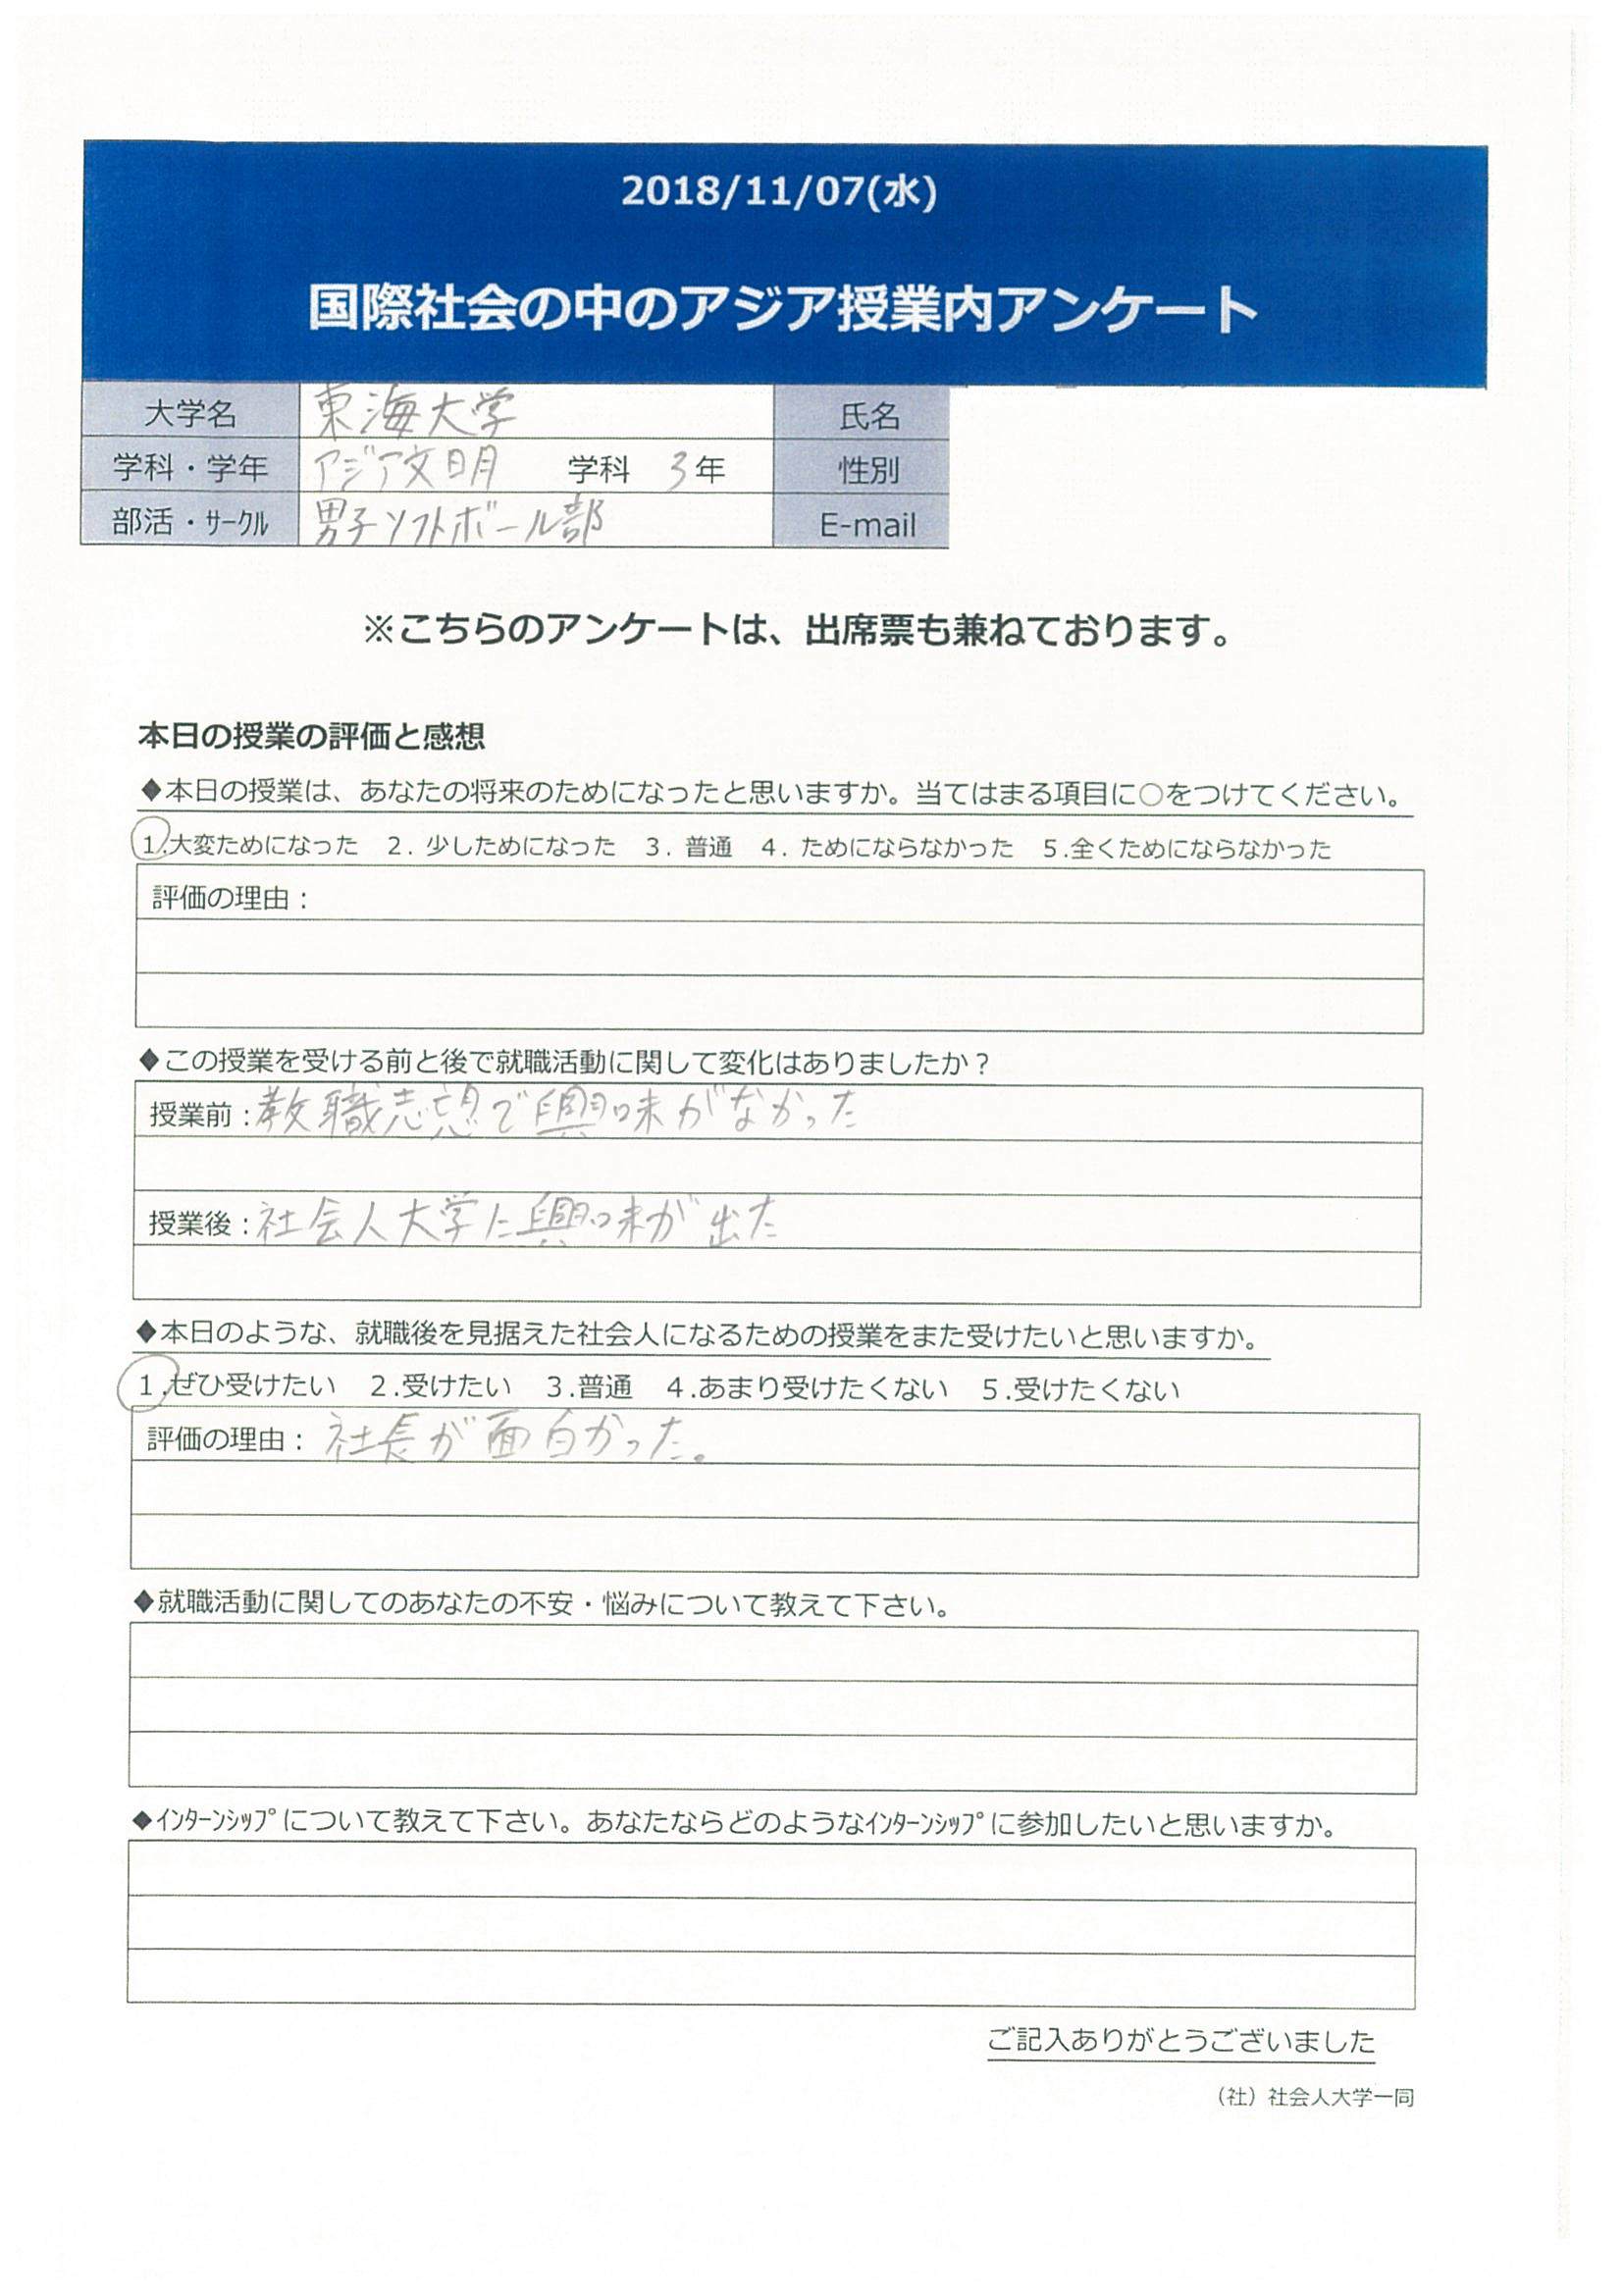 2018/11/07(水)
国際社会の中のアジア授業内アンケート
大学名 東海大学 氏名
学科・学年 アジア文明 学科 3年 性別
部活・サークル 男子ソフトボール部 E-mail
※こちらのアンケートは、出席票も兼ねております。
本日の授業の評価と感想
◆本日の授業は、あなたの将来のためになったと思いますか。当てはまる項目に○をつけてください。
1.大変ためになった 2. 少しためになった 3. 普通 4. ためにならなかった 5.全くためにならなかった
評価の理由：
◆この授業を受ける前と後で就職活動に関して変化はありましたか？
授業前：教職志望で興味がなかった
授業後：社会人大学に興味が出た
◆本日のような、就職後を見据えた社会人になるための授業をまた受けたいと思いますか。
1.ぜひ受けたい 2.受けたい 3.普通 4.あまり受けたくない 5.受けたくない
評価の理由：社長が面白かった。
◆就職活動に関してのあなたの不安・悩みについて教えて下さい。
◆インターンシップについて教えて下さい。あなたならどのようなインターンシップに参加したいと思いますか。
ご記入ありがとうございました
（社）社会人大学一同